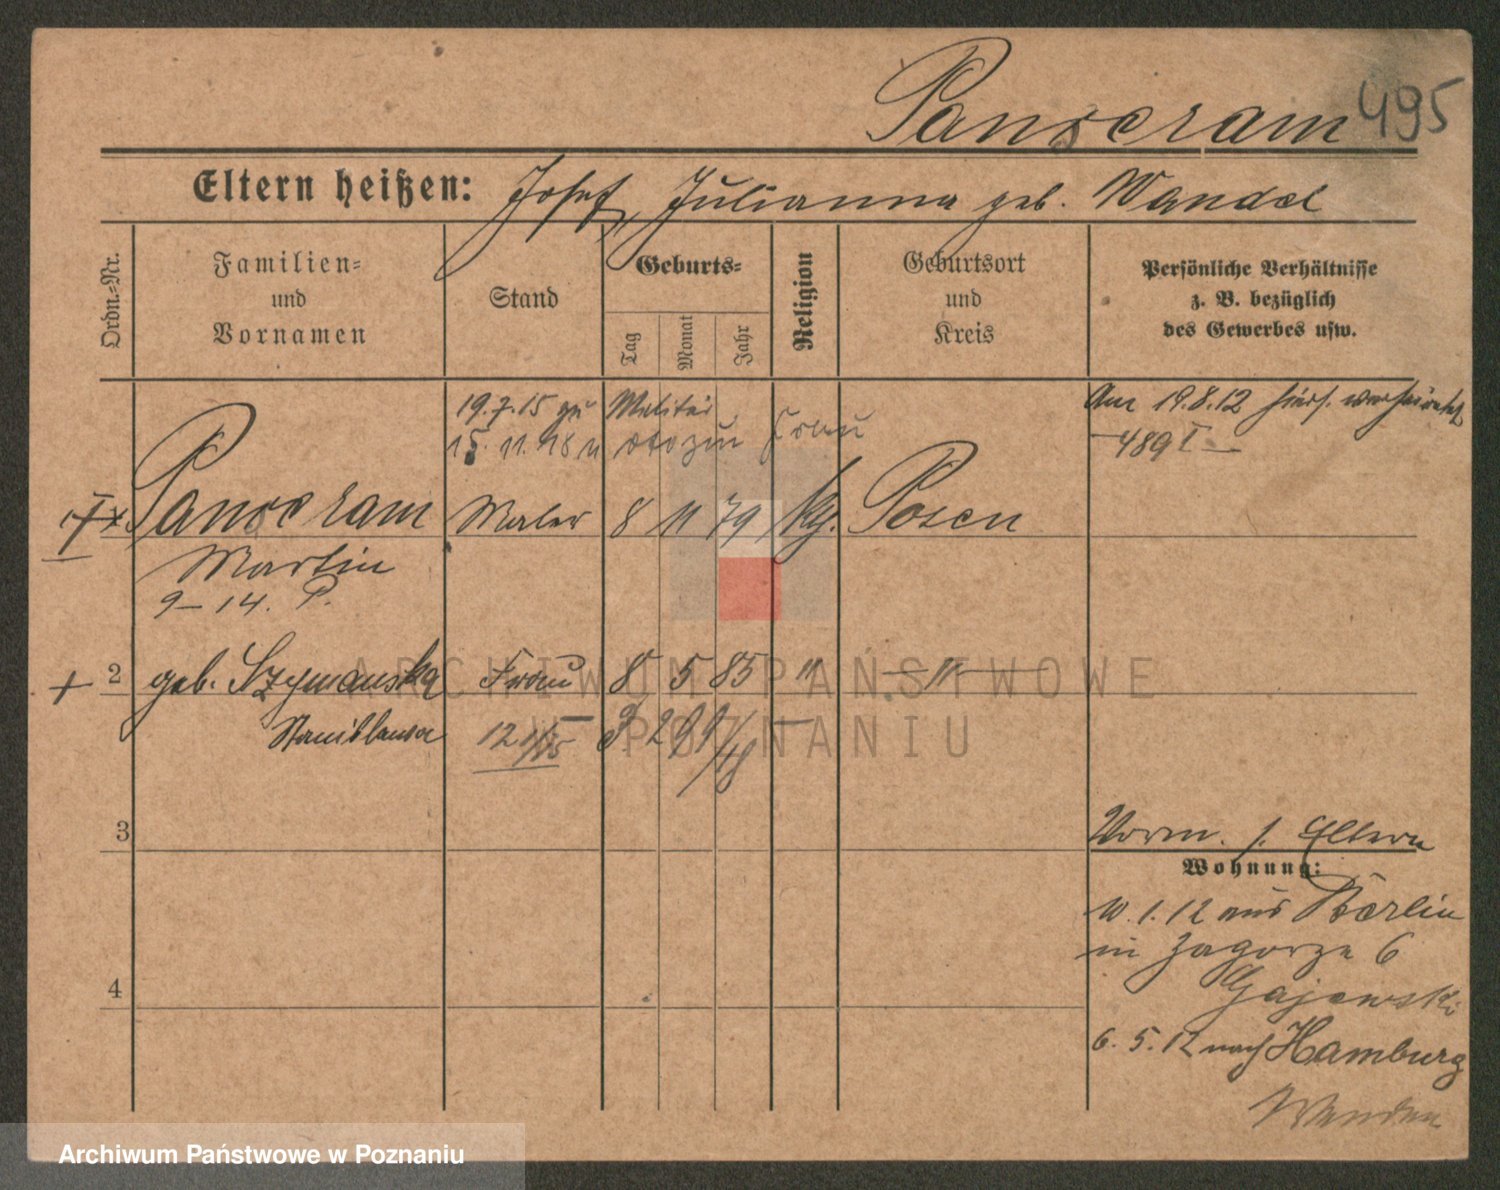 Panceram 495
Eltern heißen: Josef, Julianna geb. Wandel
Ordn.=Nr.
Familien=
und
Vornamen
Stand
Geburts=
Tag
Monat
Jahr
Religion
Geburtsort
und
Kreis
Persönliche Verhältnisse
z. B. bezüglich
des Gewerbes usw.
19.7.15 zu Militär
15. 11. 18 zur Frau
Am 19.8.12 hiers. verheiratet
— 489 I —
Panceram Maler 8 11 79 kth. Posen
Martin
9 – 14. P.
2 geb. Szymanska Frau 8 5 85 " — " —
Stanislawa 12
3
Vorm. s. Eltern
Wohnung:
10.1.12 aus Berlin
in Zagorze 6
Gajewski
4
6.5.12 nach Hamburg
ARCHIWUM PAŃSTWOWE
W POZNANIU
Archiwum Państwowe w Poznaniu